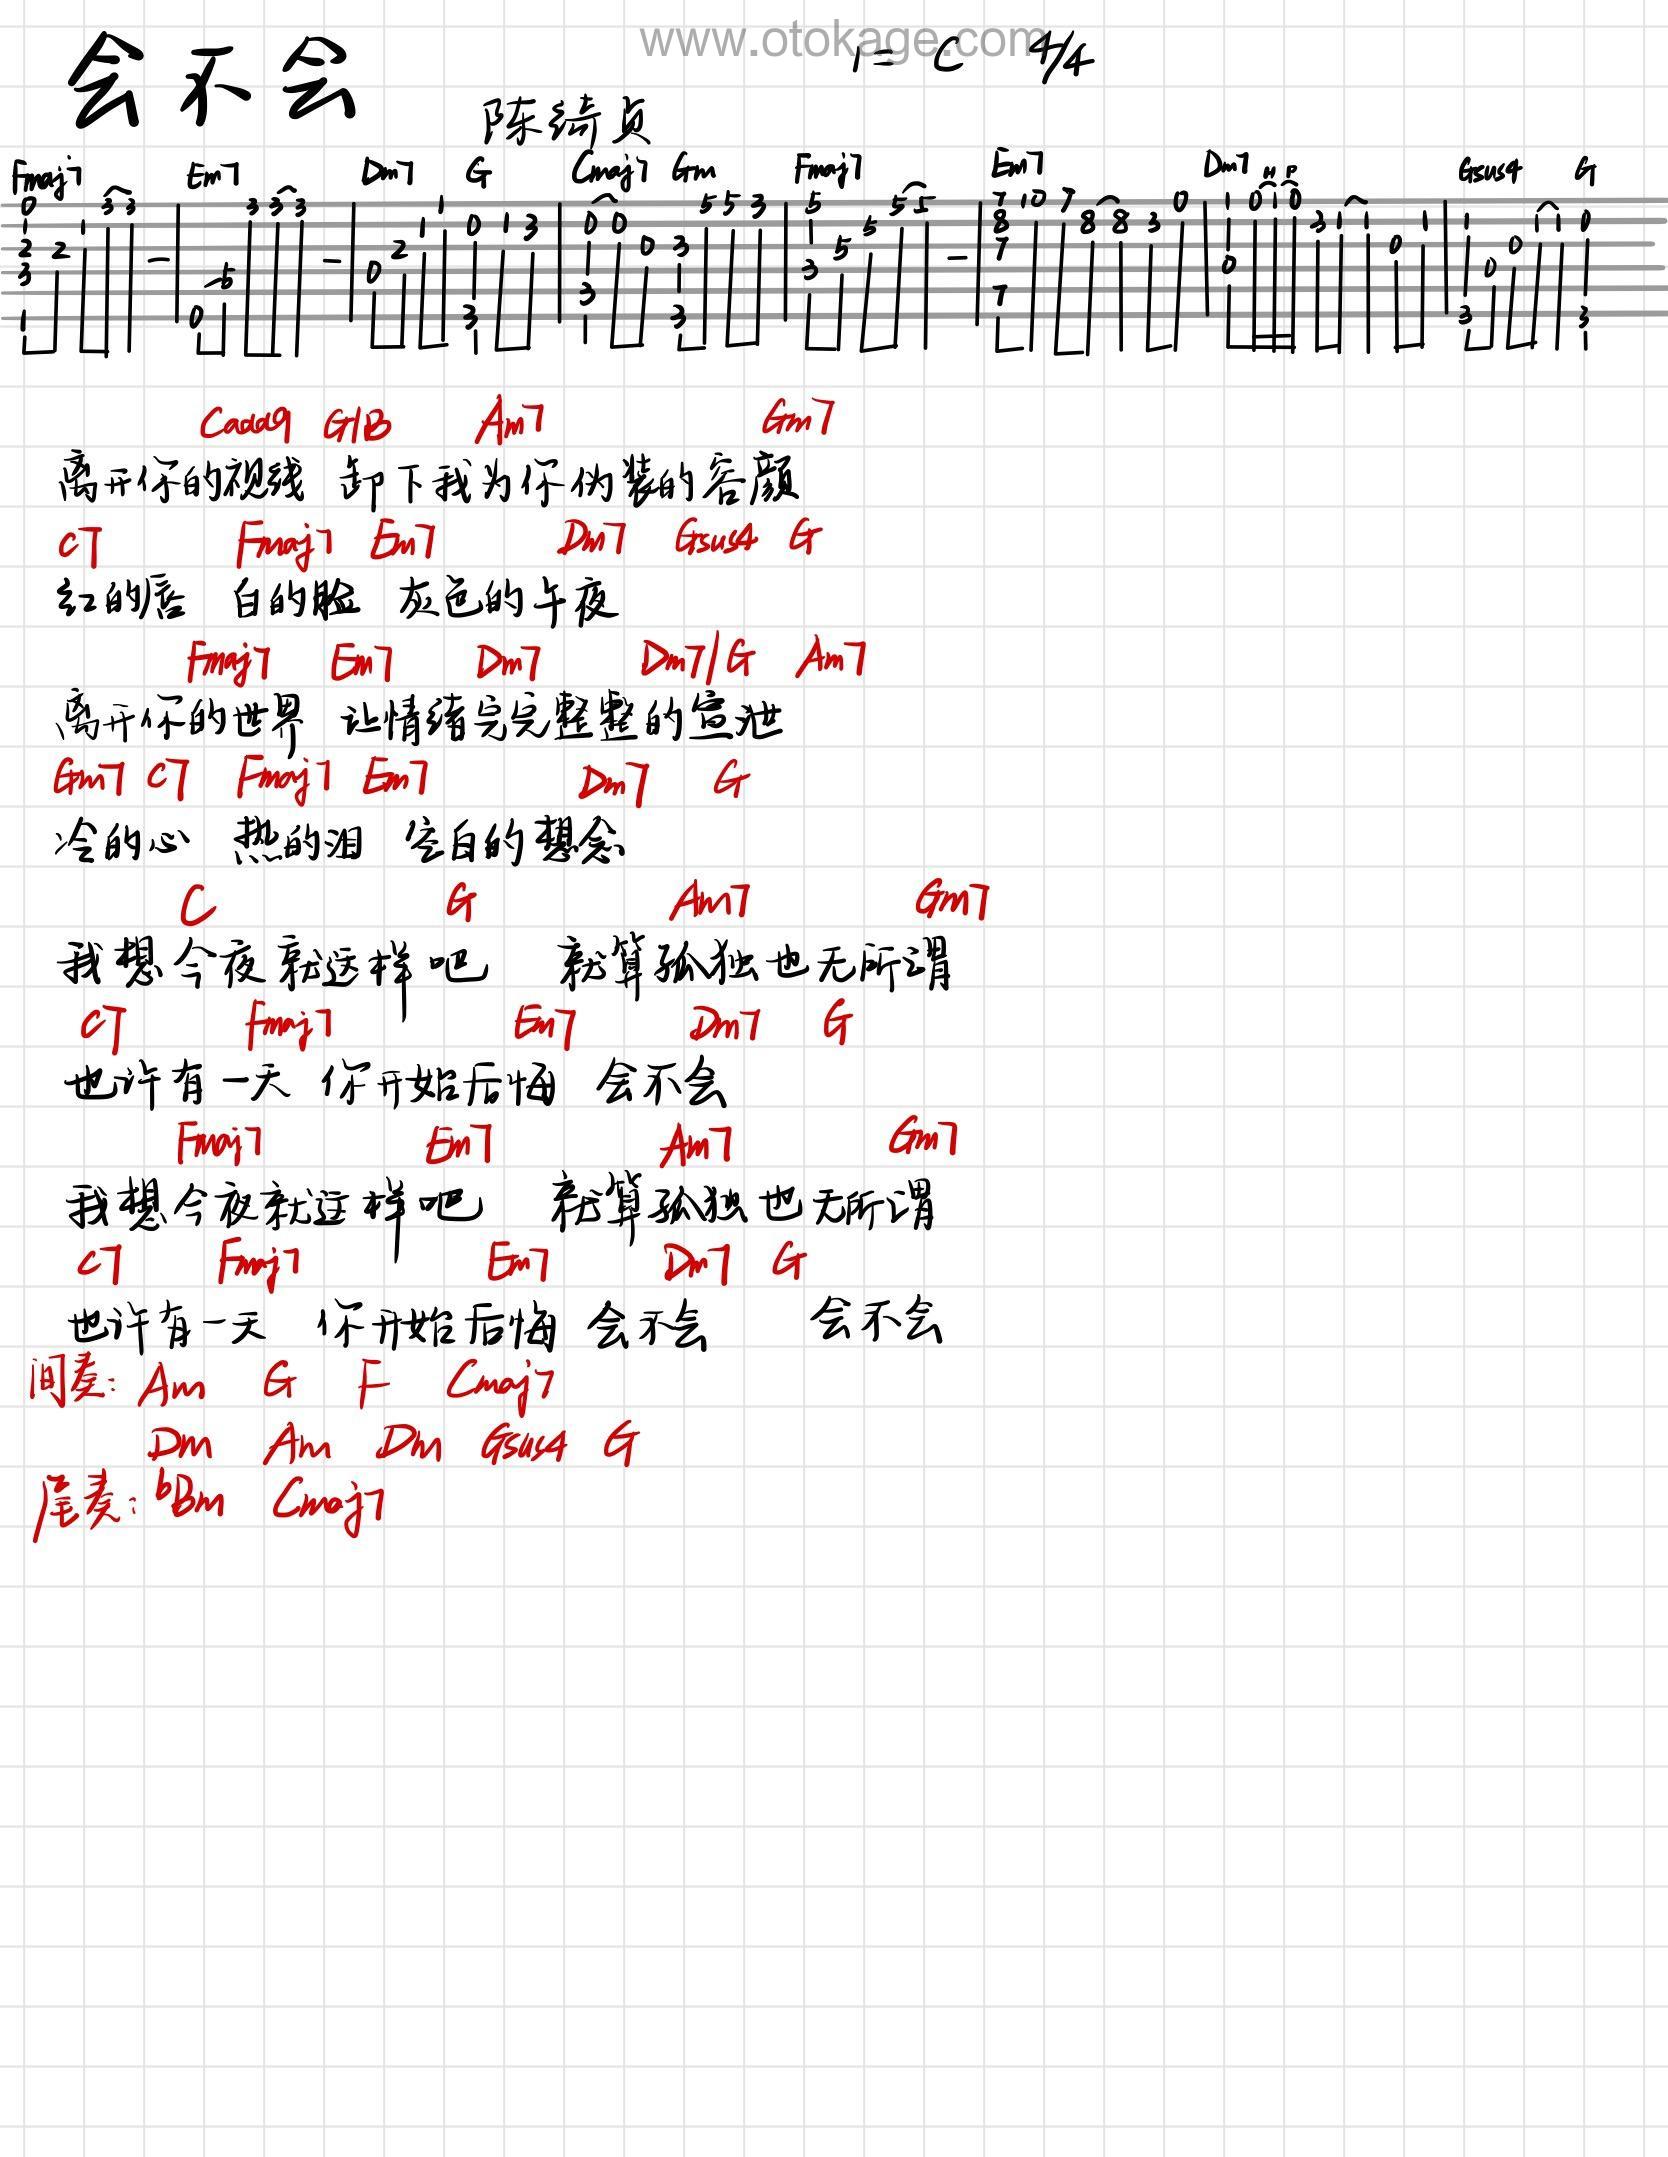 www.otokage.com
会不会 1=C 4/4
陈绮贞
Fmaj7 Em7 Dm7 G Cmaj7 Gm Fmaj7 Em7 Dm7 H P Gsus4 G
Cadd9 G/B Am7 Gm7
离开你的视线 卸下我为你伪装的容颜
C7 Fmaj7 Em7 Dm7 Gsus4 G
红的唇 白的脸 灰色的午夜
Fmaj7 Em7 Dm7 Dm7/G Am7
离开你的世界 让情绪完完整整的宣泄
Gm7 C7 Fmaj7 Em7 Dm7 G
冷的心 热的泪 空白的想念
C G Am7 Gm7
我想今夜就这样吧 就算孤独也无所谓
C7 Fmaj7 Em7 Dm7 G
也许有一天 你开始后悔 会不会
Fmaj7 Em7 Am7 Gm7
我想今夜就这样吧 就算孤独也无所谓
C7 Fmaj7 Em7 Dm7 G
也许有一天 你开始后悔 会不会 会不会
间奏: Am G F Cmaj7
Dm Am Dm Gsus4 G
尾奏: bBm Cmaj7